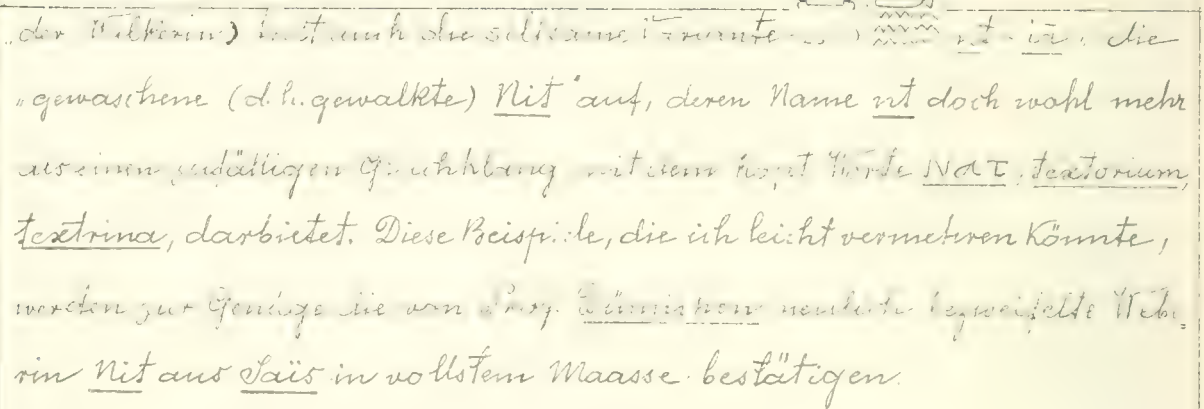 „der Walkerin) tritt auch die seltsame Variante nt-ia, die
„gewaschene (d.h. gewalkte) Nit" auf, deren Name nt doch wohl mehr
als einen zufälligen Gleichklang mit dem kopt. Worte NAT, textorium,
textrina, darbietet. Diese Beispiele, die ich leicht vermehren könnte,
werden zur Genüge die von Prof. Dümichen neulich bezweifelte Webe=
rin Nit aus Saïs in vollstem Maasse bestätigen.